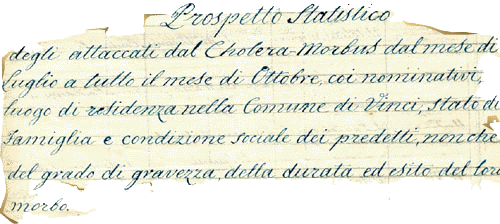 Prospetto Statistico
degli attaccati dal Cholera-Morbus dal mese di
Luglio a tutto il mese di Ottobre, coi nominativi,
luogo di residenza nella Comune di Vinci, stato di
famiglia e condizione sociale dei predetti, nonche
del grado di gravezza, della durata ed esito del loro
morbo.